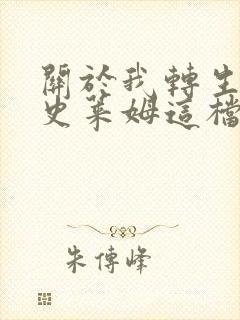 關於我轉生
史萊姆這檔
朱傳峰